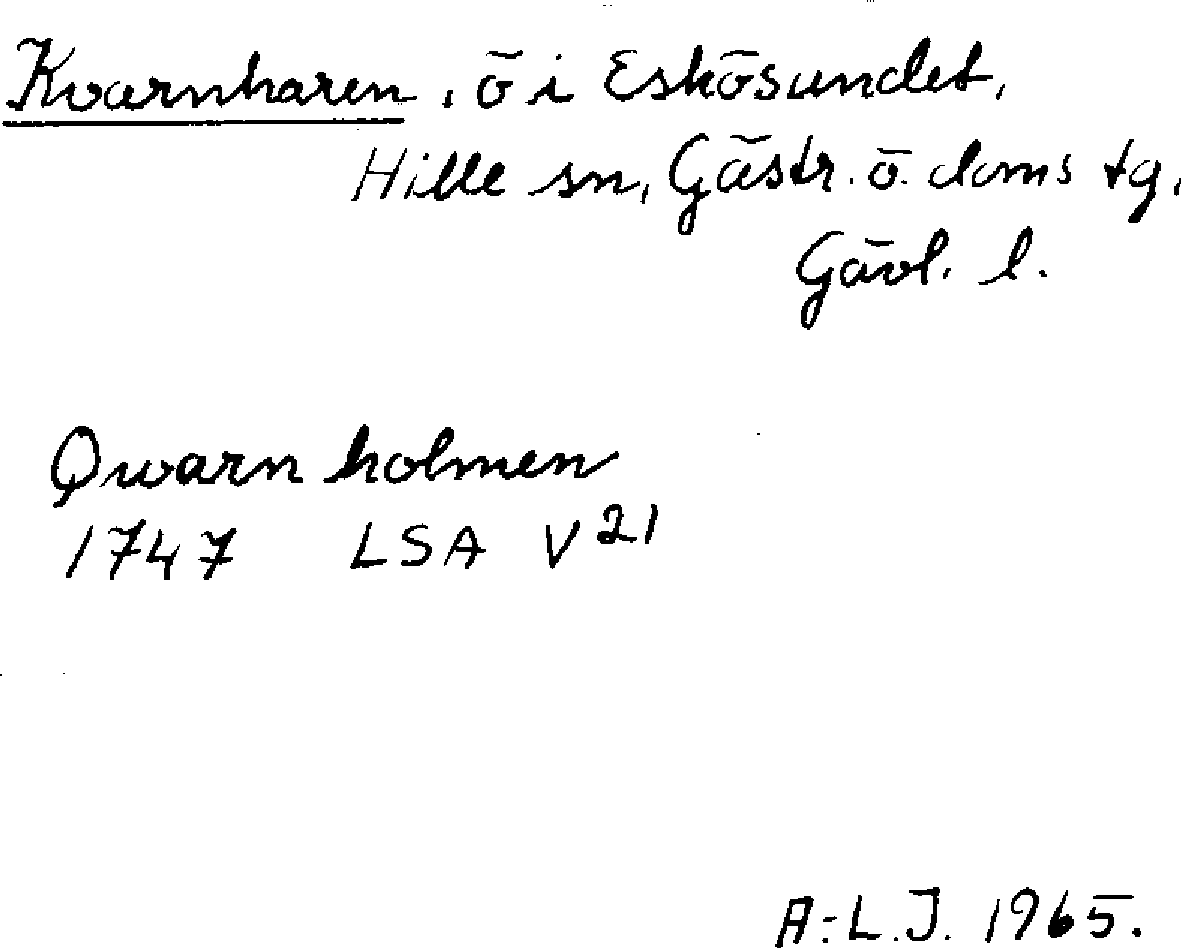 Kvarnharen, ö i Eskösundet,
Hille sn, Gästr. ö. doms tg,
Gävl. l.
Qwarn holmen
1747 LSA V 21
A:L.J. 1965.